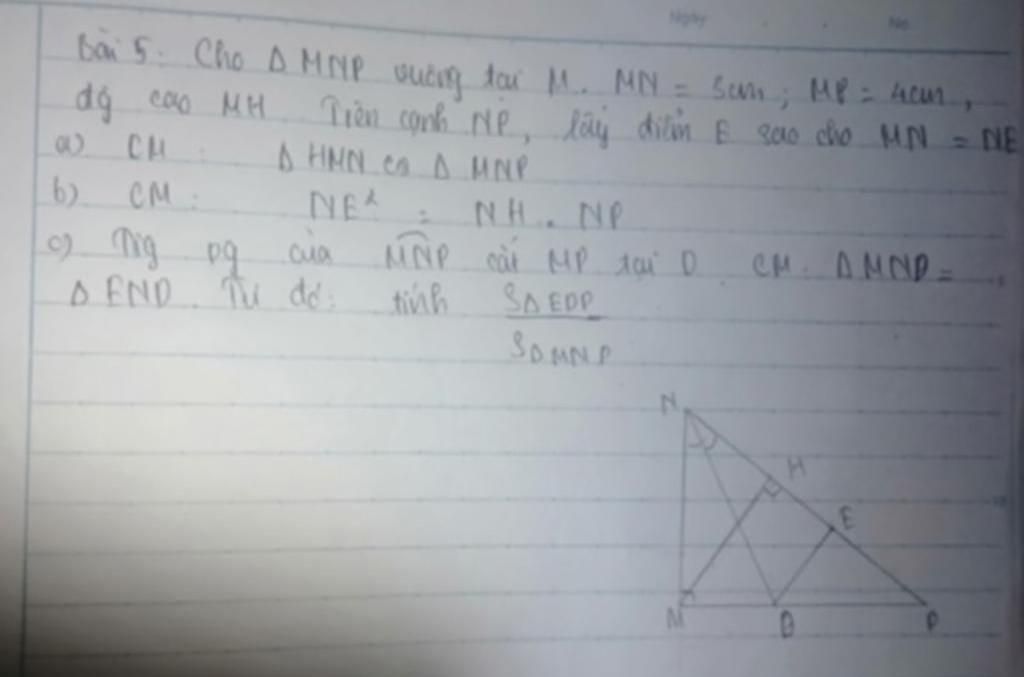 Ngày No.
Bài 5: Cho Δ MNP vuông tại M. MN = 3cm; MP = 4cm,
đg cao MH Trên cạnh NP, lấy điểm E sao cho MN = NE
a) CM: Δ HMN ∽ Δ MNP
b) CM: NE² = NH. NP
c) Tig pg của MNP cắt MP tại D CM. ΔMND =
Δ END. Từ đó: tính SΔEDP
SΔMNP
N
H
E
M D P